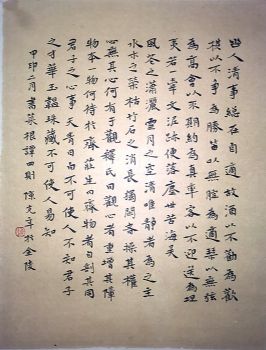 幽人清事總在自適故酒以不勸為歡
棋以不爭為勝笛以無腔為適琴以無弦
為高會以不期約為真率客以不迎送為坦
夷若一牽文泥跡便落塵世苦海矣
風花之瀟灑雪月之空清唯靜者為之主
水木之榮枯竹石之消長獨閒者操其權
心無其心何有于觀釋氏曰觀心者重增其障
物本一物何待于齊莊生曰齊物者自剖其同
君子之心事天青日白不可使人不知君子
之才華玉韞珠藏不可使人易知
甲申二月書菜根譚四則陳年於金陵